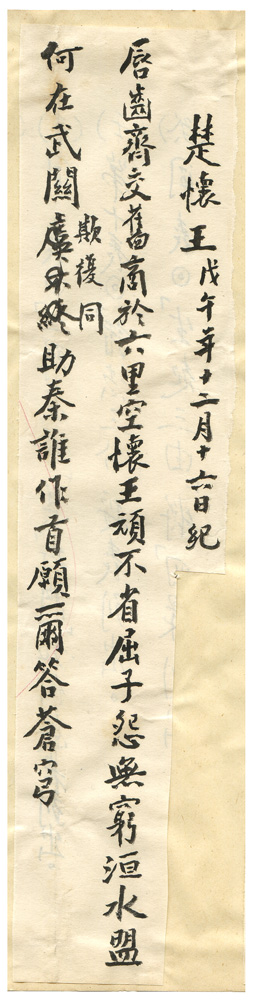 楚懷王 戊午年十二月十六日紀
唇齒齊交舊商於六里空懷王頑不省屈子怨無窮洹水盟
何在武關未終助秦誰作首願爾答蒼穹
欺復同